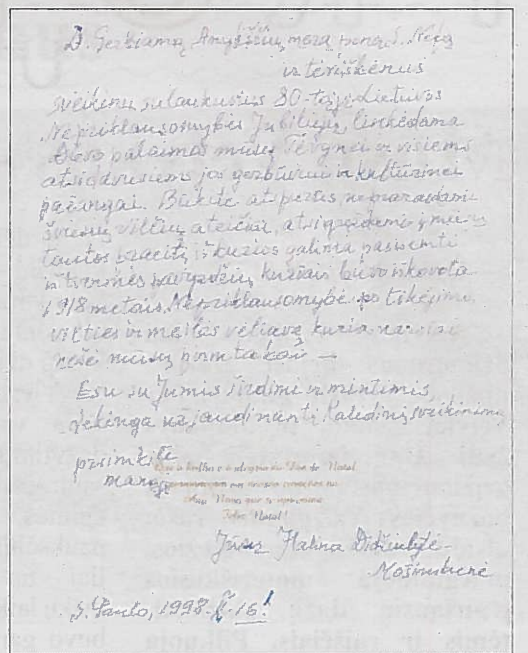 D. Gerbiamą Anykščių merą poną S. Nefą
ir tėviškėnus
sveikinu sulaukusius 80-tojo Lietuvos
Nepriklausomybės Jubiliejų, linkėdama
Dievo palaimos mūsų Tėvynei ir visiems
atsidavusiems jos gerbūviui ir kultūrinei
pažangai. Būkite atsparūs neprarasdami
šviesių vilčių ateičiai, atsigręždami į mūsų
tautos praeitį, iš kurios galima pasisemti
ištvermės pavyzdžių, kuriais buvo iškovota
1918 metais Nepriklausomybė po tikėjimo,
vilties ir meilės vėliava, kurią narsiai
nešė mūsų pirmtakai —
Esu su Jumis širdimi ir mintimis,
dėkinga už jaudinantį Kalėdinį sveikinimą
priimkite
mano
Que a
do Dia de Natal
Natal!
Jūsų Halina Didžiulytė-
Mošinskienė
S. Paulo, 1998. II. 16!